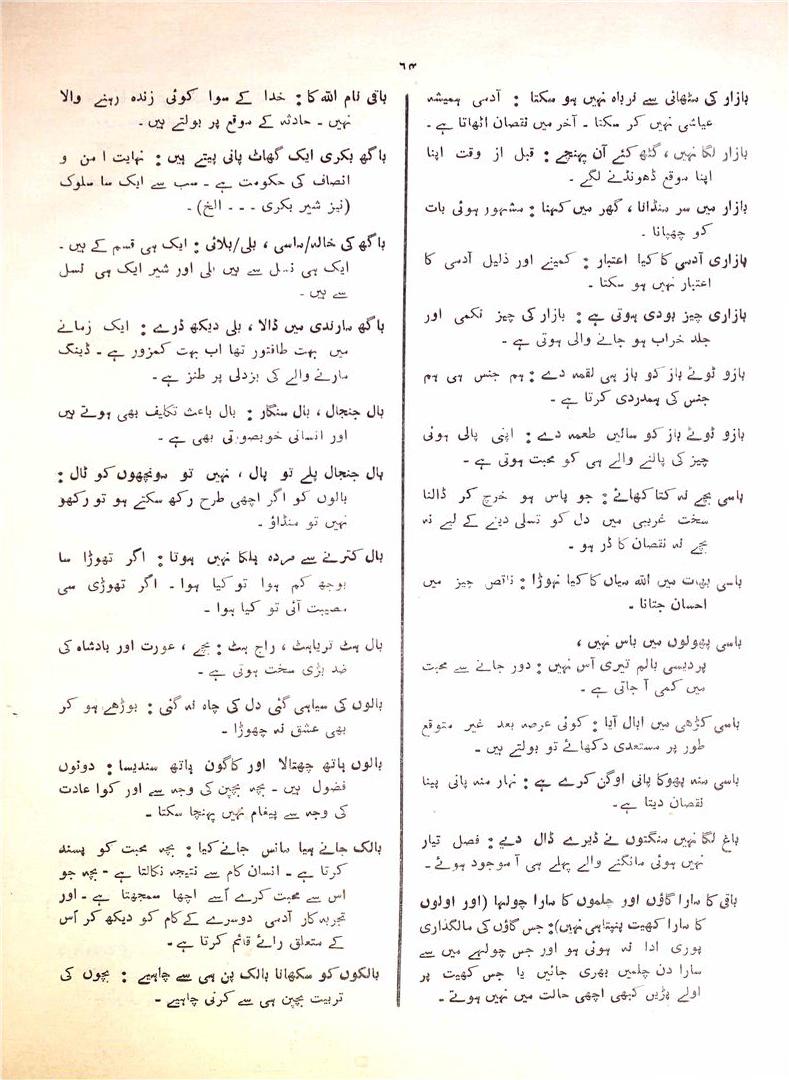 ۶۴
بازار کی مٹھائی سے نرباہ نہیں ہو سکتا : آدمی ہمیشہ
عیاشی نہیں کر سکتا ۔ آخر میں نقصان اٹھاتا ہے ۔
بازار لگا نہیں ، گٹھ کٹے آن پہنچے : قبل از وقت اپنا
اپنا موقع ڈھونڈنے لگے ۔
بازار میں سر منڈانا ، گھر میں کہنا : مشہور ہوئی بات
کو چھپانا ۔
بازاری آدمی کا کیا اعتبار : کمینے اور ذلیل آدمی کا
اعتبار نہیں ہو سکتا ۔
بازاری چیز بودی ہوتی ہے : بازار کی چیز نکمی اور
جلد خراب ہو جانے والی ہوتی ہے ۔
بازو ٹوٹے باز کو باز ہی لقمہ دے : ہم جنس ہی ہم
جنس کی ہمدردی کرتا ہے ۔
بازو ٹوٹے باز کو سائیں طعمہ دے : اپنی پالی ہوئی
چیز کی پالنے والے ہی کو محبت ہوتی ہے ۔
باسی بچے نہ کتا کھائے : جو پاس ہو خرچ کر ڈالنا
سخت غریبی میں دل کو تسلی دینے کے لیے نہ
بچے نہ نقصان کا ڈر ہو ۔
باسی بھات میں اللہ میاں کا کیا نہوڑا : ناقص چیز میں
احسان جتانا ۔
باسی پھولوں میں باس نہیں ،
پردیسی بالم تیری آس نہیں : دور جانے سے محبت
میں کمی آ جاتی ہے ۔
باسی کڑھی میں ابال آیا : کوئی عرصہ بعد غیر متوقع
طور پر مستعدی دکھائے تو بولتے ہیں ۔
باسی منہ پھوکا پانی اوگن کرے ہے : نہار منہ پانی پینا
نقصان دیتا ہے۔
باغ لگا نہیں منگتوں نے ڈیرے ڈال دے : فصل تیار
نہیں ہوئی مانگنے والے پہلے ہی آ موجود ہوئے ۔
باقی کا مارا گاؤں اور چلموں کا مارا چولہا (اور اولوں
کا مارا کھیت پنپتا ہی نہیں) : جس گاؤں کی مالگذاری
پوری ادا نہ ہوئی ہو اور جس چولہے میں سے
سارا دن چلمیں بھری جائیں یا جس کھیت پر
اولے پڑیں کبھی اچھی حالت میں نہیں ہوتے ۔
باقی نام اللہ کا : خدا کے سوا کوئی زندہ رہنے والا
نہیں ۔ حادثہ کے موقع پر بولتے ہیں ۔
باگھ بکری ایک گھاٹ پانی پیتے ہیں : نہایت امن و
انصاف کی حکومت ہے ۔ سب سے ایک سا سلوک
(نیز شیر بکری ۔ ۔ ۔ الخ) ۔
باگھ کی خالہ/ماسی ، بلی/بلائی : ایک ہی قسم کے ہیں ۔
ایک ہی نسل سے ہیں بلی اور شیر ایک ہی نسل
سے ہیں ۔
باگھ مارندی میں ڈالا ، بلی دیکھ ڈرے : ایک زمانے
میں بہت طاقتور تھا اب بہت کمزور ہے ۔ ڈینگ
مارنے والے کی بزدلی پر طنز ہے ۔
بال جنجال ، بال سنگار : بال باعث تکلیف بھی ہوتے ہیں
اور انسانی خوبصورتی بھی ہے ۔
بال جنجال پلے تو پال ، نہیں تو مونچھوں کو ٹال :
بالوں کو اگر اچھی طرح رکھ سکتے ہو تو رکھو
نہیں تو منڈاؤ ۔
بال کترنے سے مردہ ہلکا نہیں ہوتا : اگر تھوڑا سا
بوجھ کم ہوا تو کیا ہوا ۔ اگر تھوڑی سی
مصیبت آئی تو کیا ہوا ۔
بال ہٹ تریاہٹ ، راج ہٹ : بچے ، عورت اور بادشاہ کی
ضد بڑی سخت ہوتی ہے ۔
بالوں کی سیاہی گئی دل کی چاہ نہ گئی : بوڑھے ہو کر
بھی عشق نہ چھوڑا ۔
بالوں ہاتھ چھنالا اور کاگون ہاتھ سندیسا : دونوں
فضول ہیں ۔ بچہ بچپن کی وجہ سے اور کوا عادت
کی وجہ سے پیغام نہیں پہنچا سکتا ۔
بالک جانے ہیا مانس جانے کیا : بچہ محبت کو پسند
کرتا ہے ۔ انسان کام سے نتیجہ نکالتا ہے ۔ بچہ جو
اس سے محبت کرے اُسے اچھا سمجھتا ہے ۔ اور
تجربہ کار آدمی دوسرے کے کام کو دیکھ کر اُس
کے متعلق رائے قائم کرتا ہے ۔
بالکوں کو سکھانا بالک پن ہی سے چاہیے : بچوں کی
تربیت بچپن ہی سے کرنی چاہیے ۔